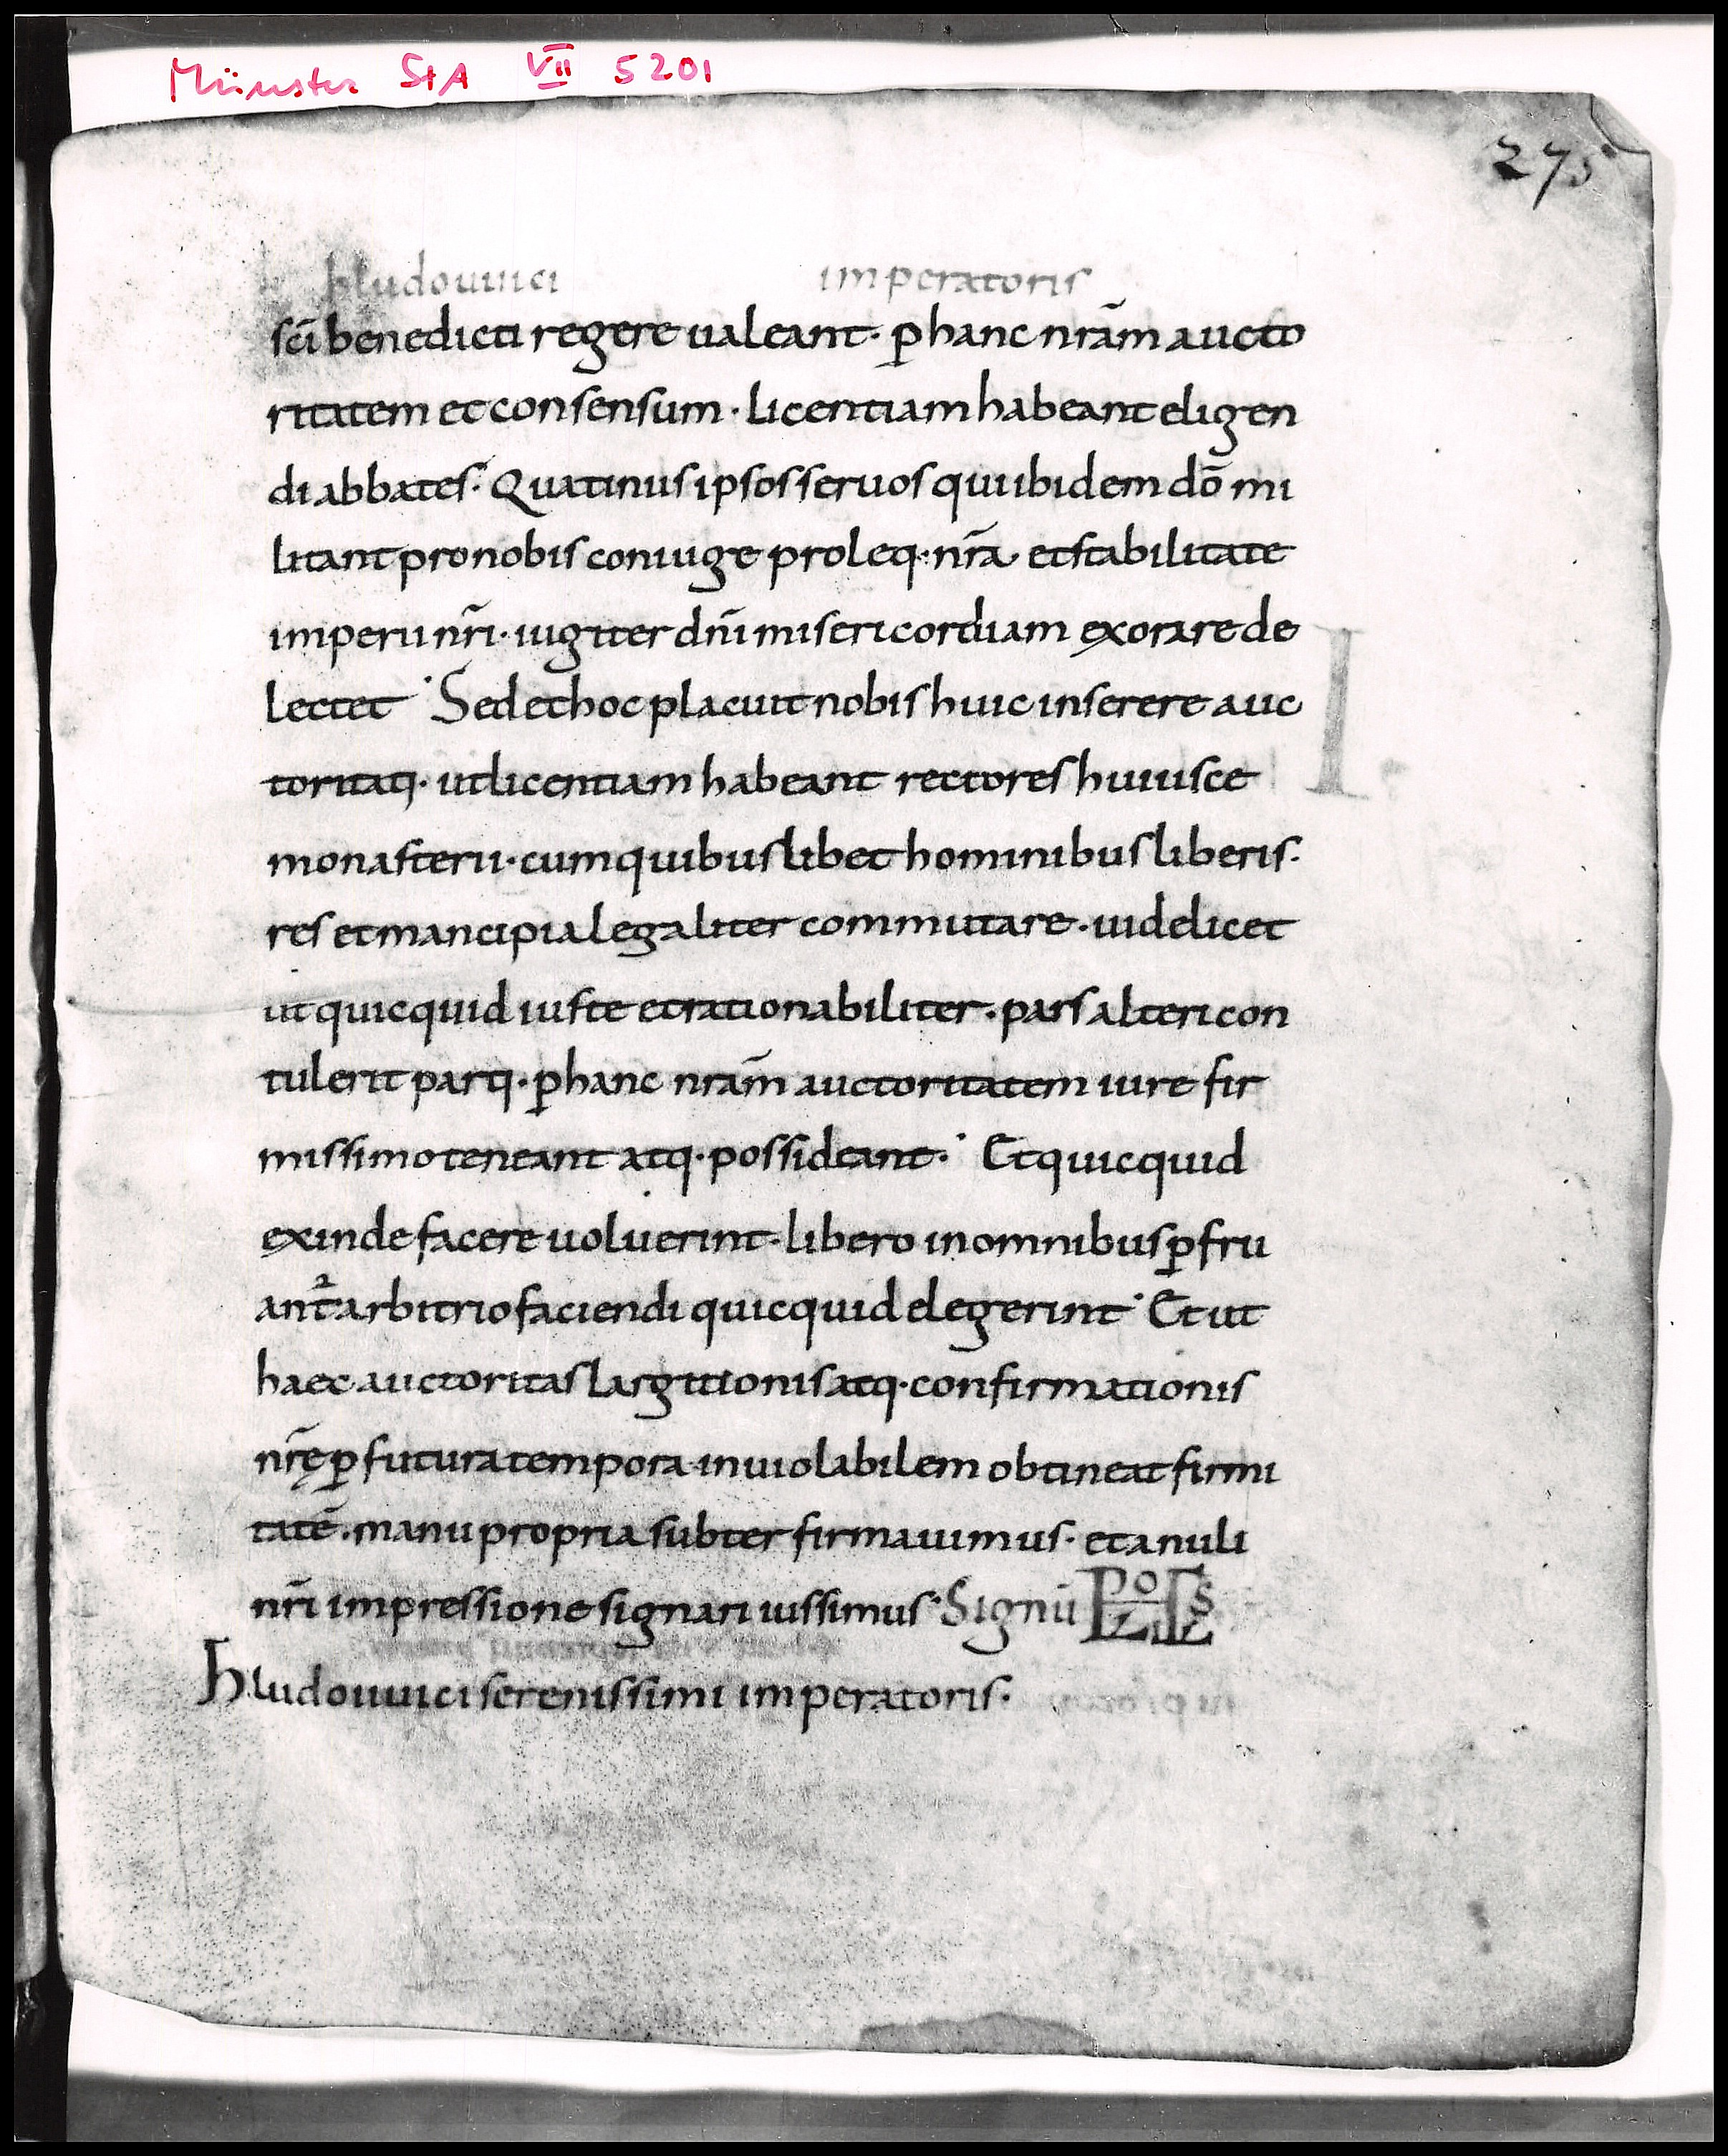 Münster StA VII 5201
275
hludouuici imperatoris
sc̄i benedicti regere ualeant· ꝑ hanc nr̄am aucto
ritatem et consensum· licentiam habeant eligen
di abbates· Quatinus ipsos seruos qui ibidem dō mi
litant pro nobis coniuge proleq· nr̄a et stabilitate
imperii nr̄i· iugiter dn̄i misericordiam exorare de
lectet· Sed et hoc placuit nobis huic inserere auc
toritati· ut licentiam habeant rectores huiusce
monasterii· cum quibuslibet hominibus liberis·
res et mancipia legaliter commutare· uidelicet
ut quicquid iuste et rationabiliter· pars alteri con
tulerit parti· ꝑ hanc nr̄am auctoritatem iure fir
missimo teneant atq· possideant· Et quicquid
exinde facere uoluerint· libero in omnibus ꝑfru
ant᷑ arbitrio faciendi quicquid elegerint· Et ut
haec auctoritas largitionis atq· confirmationis
nr̄ę ꝑ futura tempora inuiolabilem obtineat firmi
tatē· manu propria subter firmauimus· et anuli
nr̄i impressione signari iussimus· Signū
Hludouuici serenissimi imperatoris·